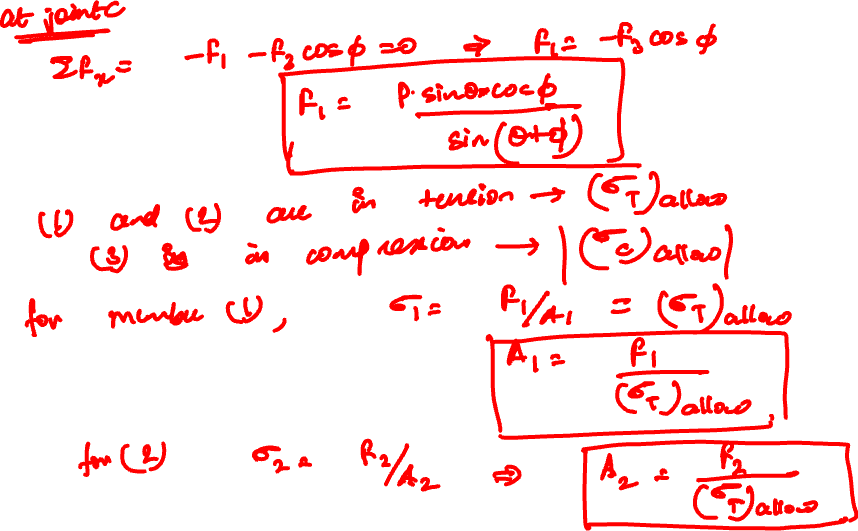 at joint C
Σfx = -f1 - f3 cos ϕ = 0 ⇒ f1 = -f3 cos ϕ
f1 = P·sinθ×cosϕ / sin(θ+ϕ)
(1) and (2) are in tension → (σT)allow
(3) is in compression → |(σc)allow|
for member (1), σ1 = F1/A1 = (σT)allow
A1 = F1 / (σT)allow
for (2) σ2 = F2/A2 ⇒ A2 = F2 / (σT)allow